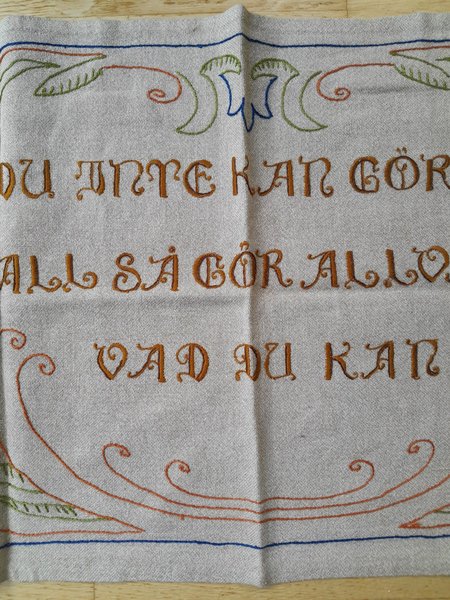 DU INTE KAN GÖR
ALL SÅ GÖR ALLV
VAD DU KAN